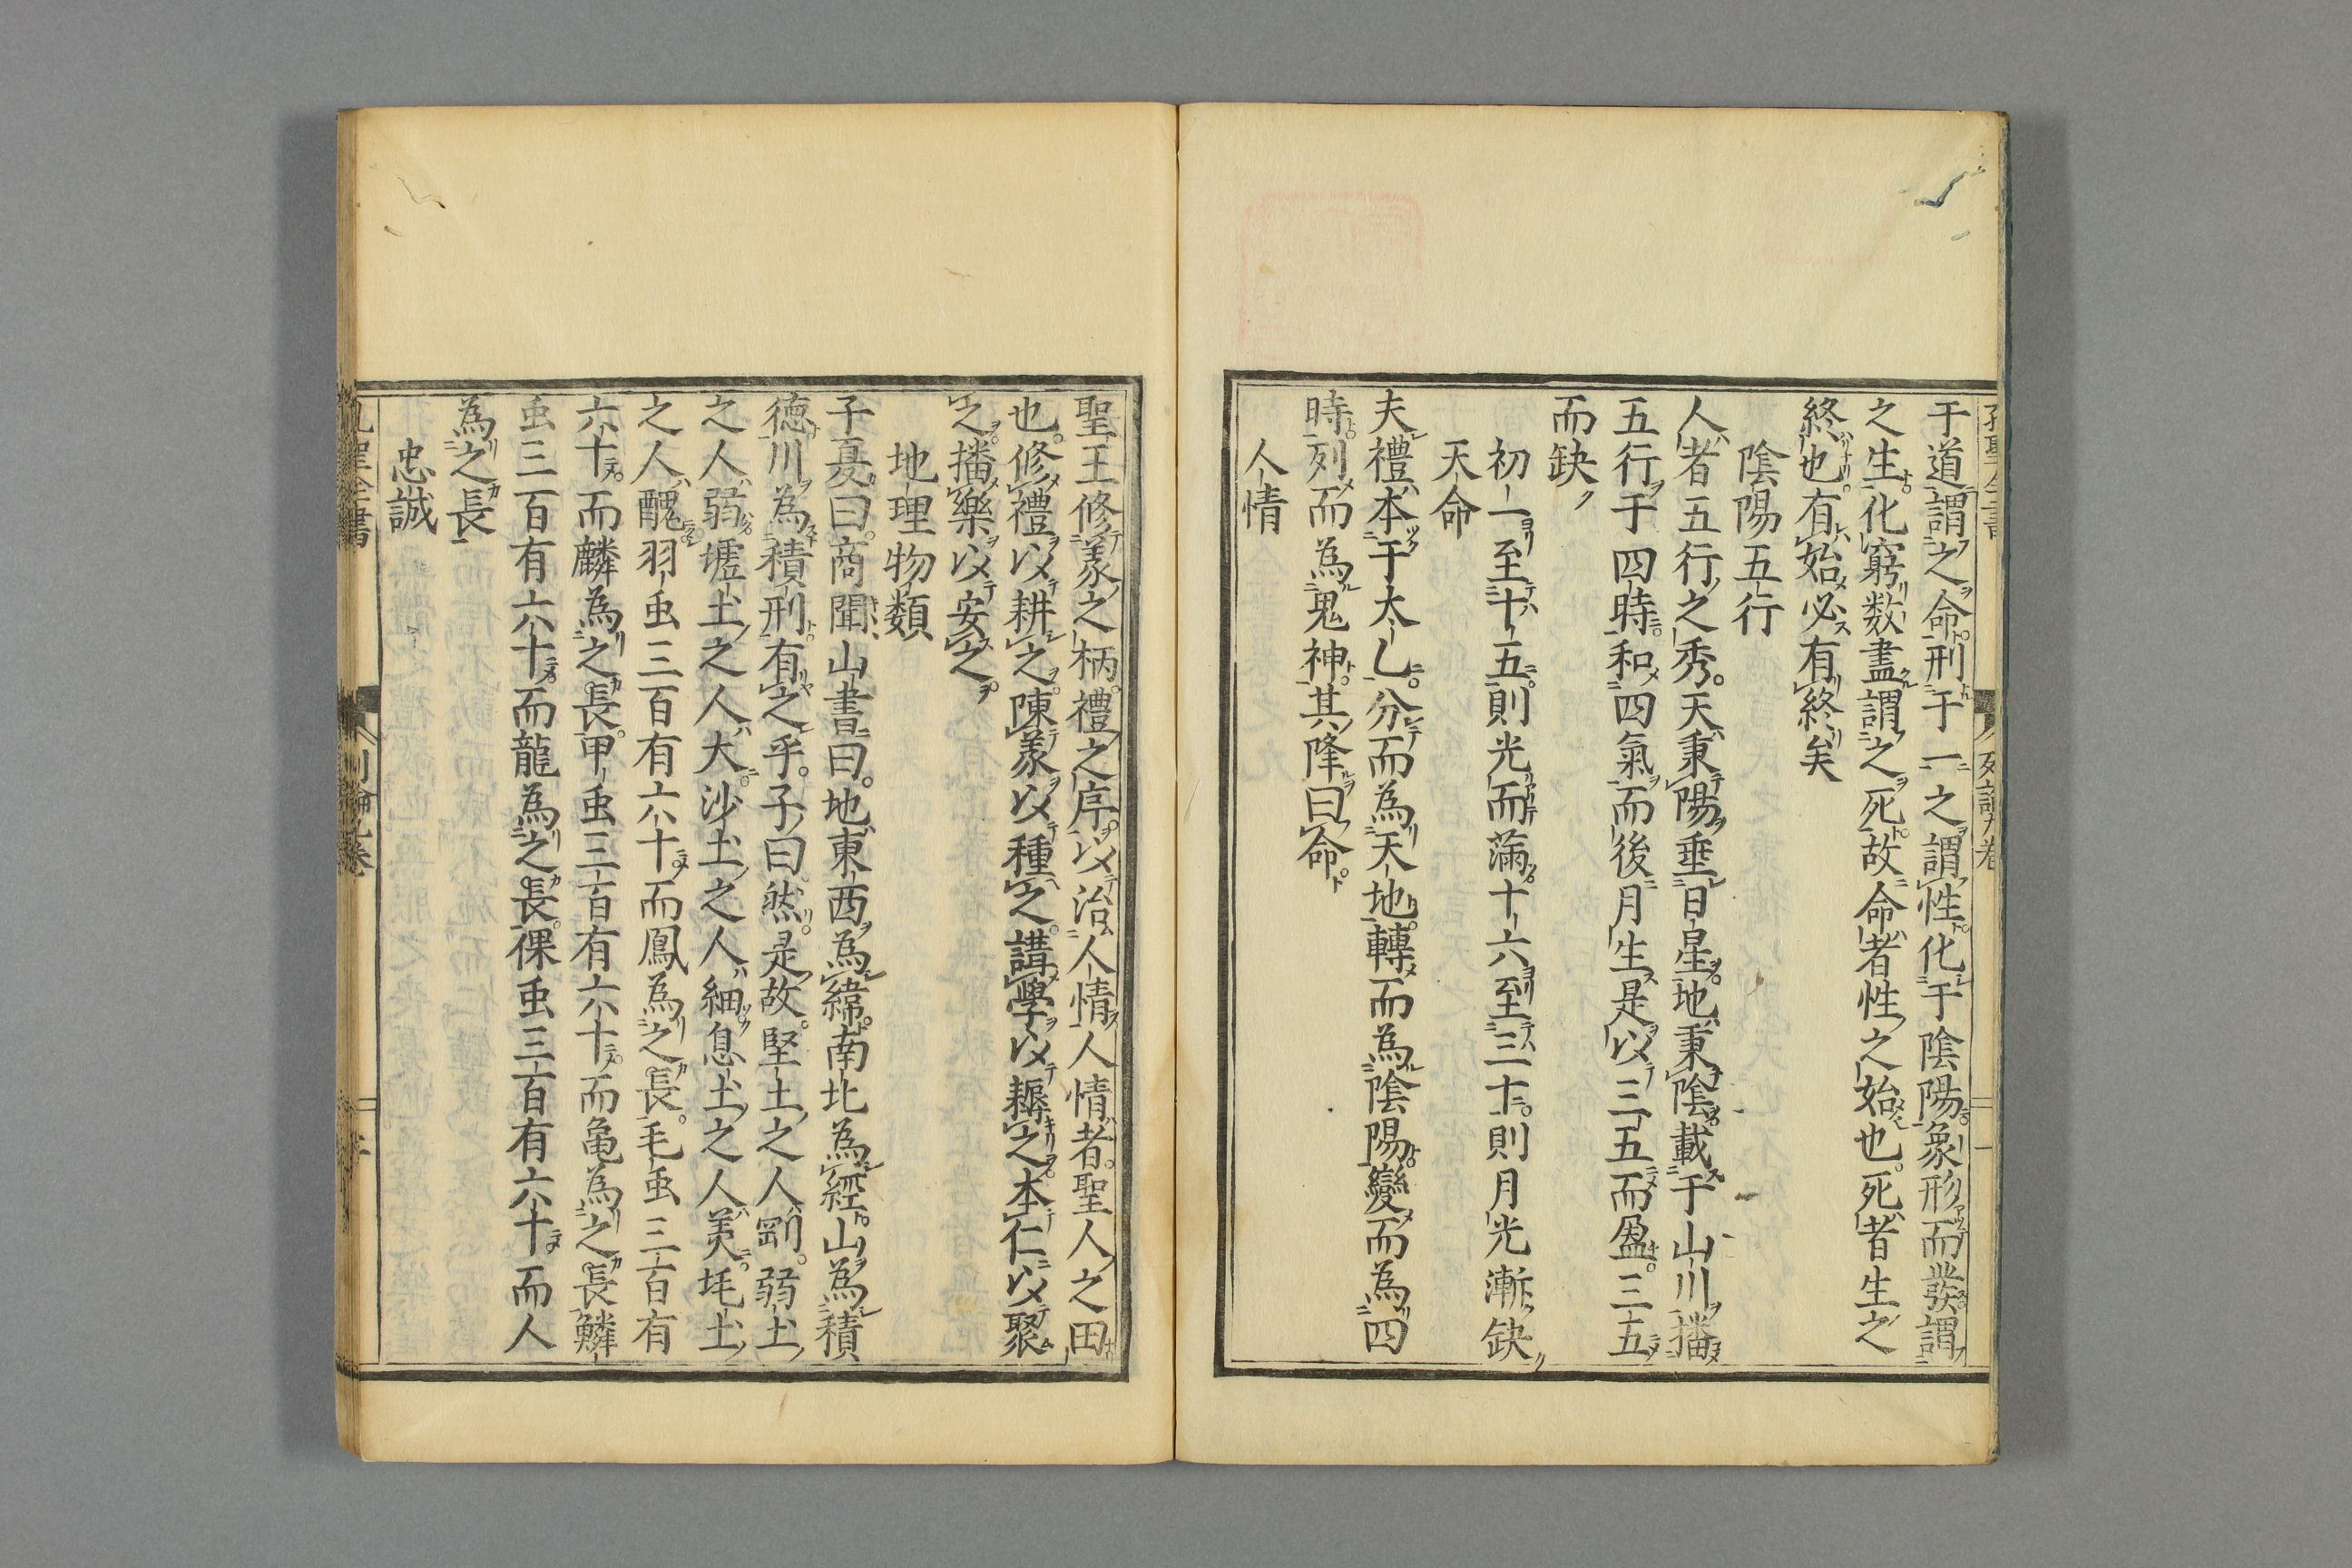 于道謂之命刑于一之謂性化于陰陽象形而發謂
之生化窮数盡謂之死故命者性之始也死者生之
終也有始必有終矣
陰陽五行
人者五行之秀天秉陽垂日星地秉陰載于山川播
五行于四時和四氣而後月生是以三五而盈三五
而缺
初一至十五則光而滿十六至三十則月光漸缺
天命
夫禮本于大乚分而為天地轉而為陰陽變而為四
時列而為鬼神其降曰命
人情
聖王修義之柄禮之序以治人情人情者聖人之田
也修禮以耕之陳義以種之講學以耨之本仁以聚
之播樂以安之
地理物類
子夏曰商聞山書曰地東西為緯南北為經山為積
徳川為積刑有之乎子曰然是故堅土之人剛弱土
之人弱壚土之人大沙土之人細息土之人美耗土
之人醜羽虫三百有六十而鳳為之長毛虫三百有
六十而麟為之長甲虫三百有六十而亀為之長鱗
虫三百有六十而龍為之長倮虫三百有六十而人
為之長
忠誠